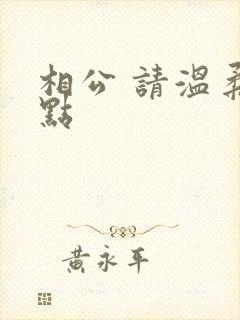 相公 請溫柔
點
黃永平